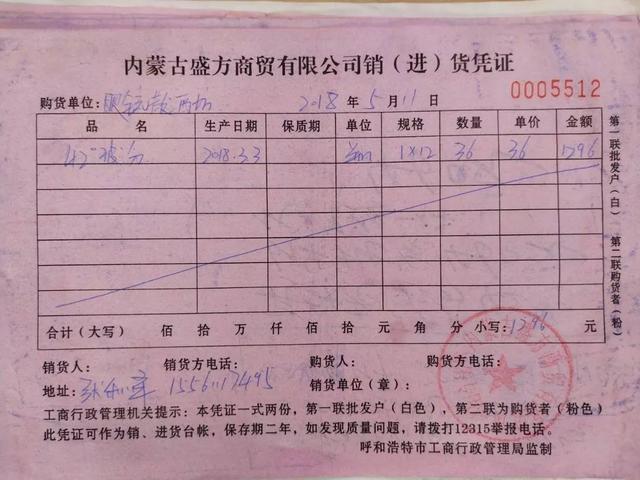 内蒙古盛方商贸有限公司销（进）货凭证
0005512
购货单位: 2018 年 5 月 11 日
品 名 生产日期 保质期 单位 规格 数量 单价 金额
42° 2018.3.3 1×12 36 36 1296
合计（大写） 佰 拾 万 仟 佰 拾 元 角 分 小写:1296 元
销货人: 销货方电话: 购货人: 购货方电话:
地址: 15561117495 销货单位（章）:
工商行政管理机关提示：本凭证一式两份，第一联批发户（白色），第二联为购货者（粉色）
此凭证可作为销、进货台帐，保存期二年，如发现质量问题，请拨打12315举报电话。
呼和浩特市工商行政管理局监制
第一联批发户（白） 第二联购货者（粉）